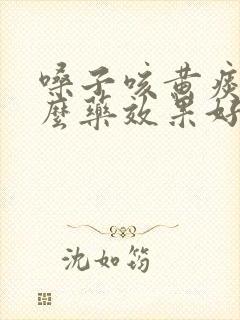 嗓子咳黄痰
麼藥效果好
沈如筠